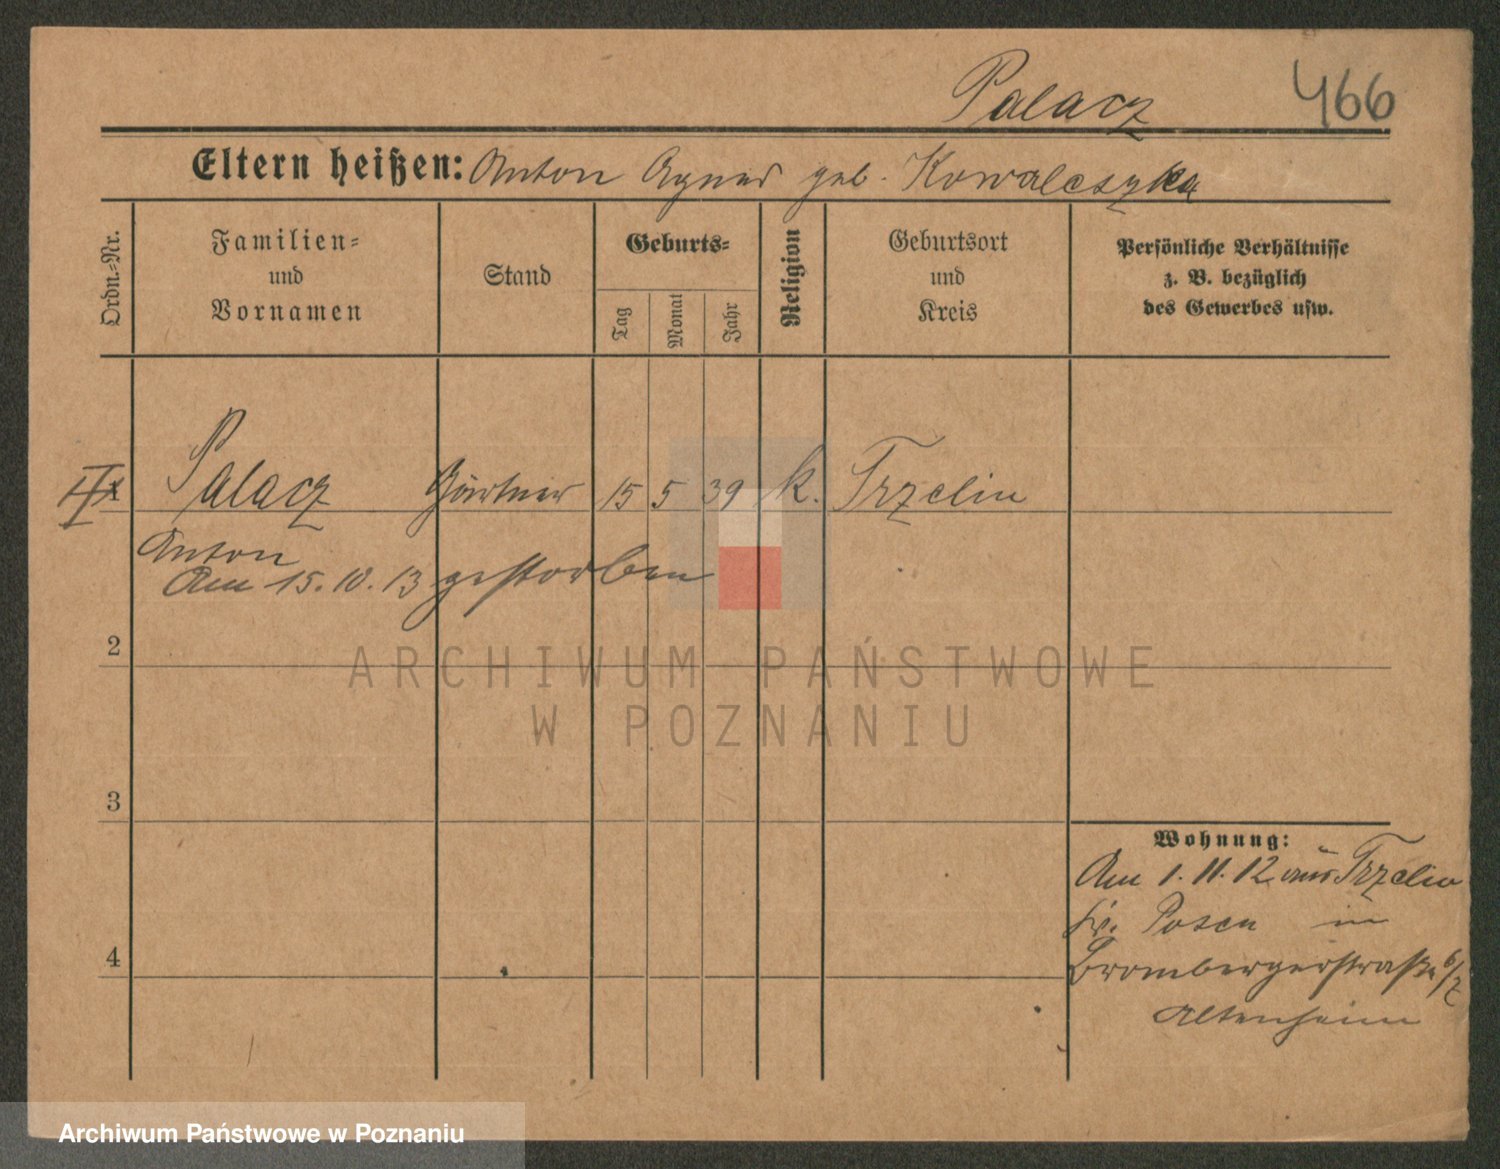 Palacz 466
Eltern heißen: Anton Agnes geb. Kowalczyka
Ordn.-Nr.
Familien-
und
Vornamen
Stand
Geburts-
Tag
Monat
Jahr
Religion
Geburtsort
und
Kreis
Persönliche Verhältnisse
z. B. bezüglich
des Gewerbes usw.
1 Palacz Gärtner 15 5 39 k. Trzelin
Anton
Am 15.10.13 gestorben
2
3
4
Wohnung:
Am 1.11.12 aus Trzelin
Kr. Posen in
Brombergerstraße 6/7
Altenheim
ARCHIWUM PAŃSTWOWE
W POZNANIU
Archiwum Państwowe w Poznaniu